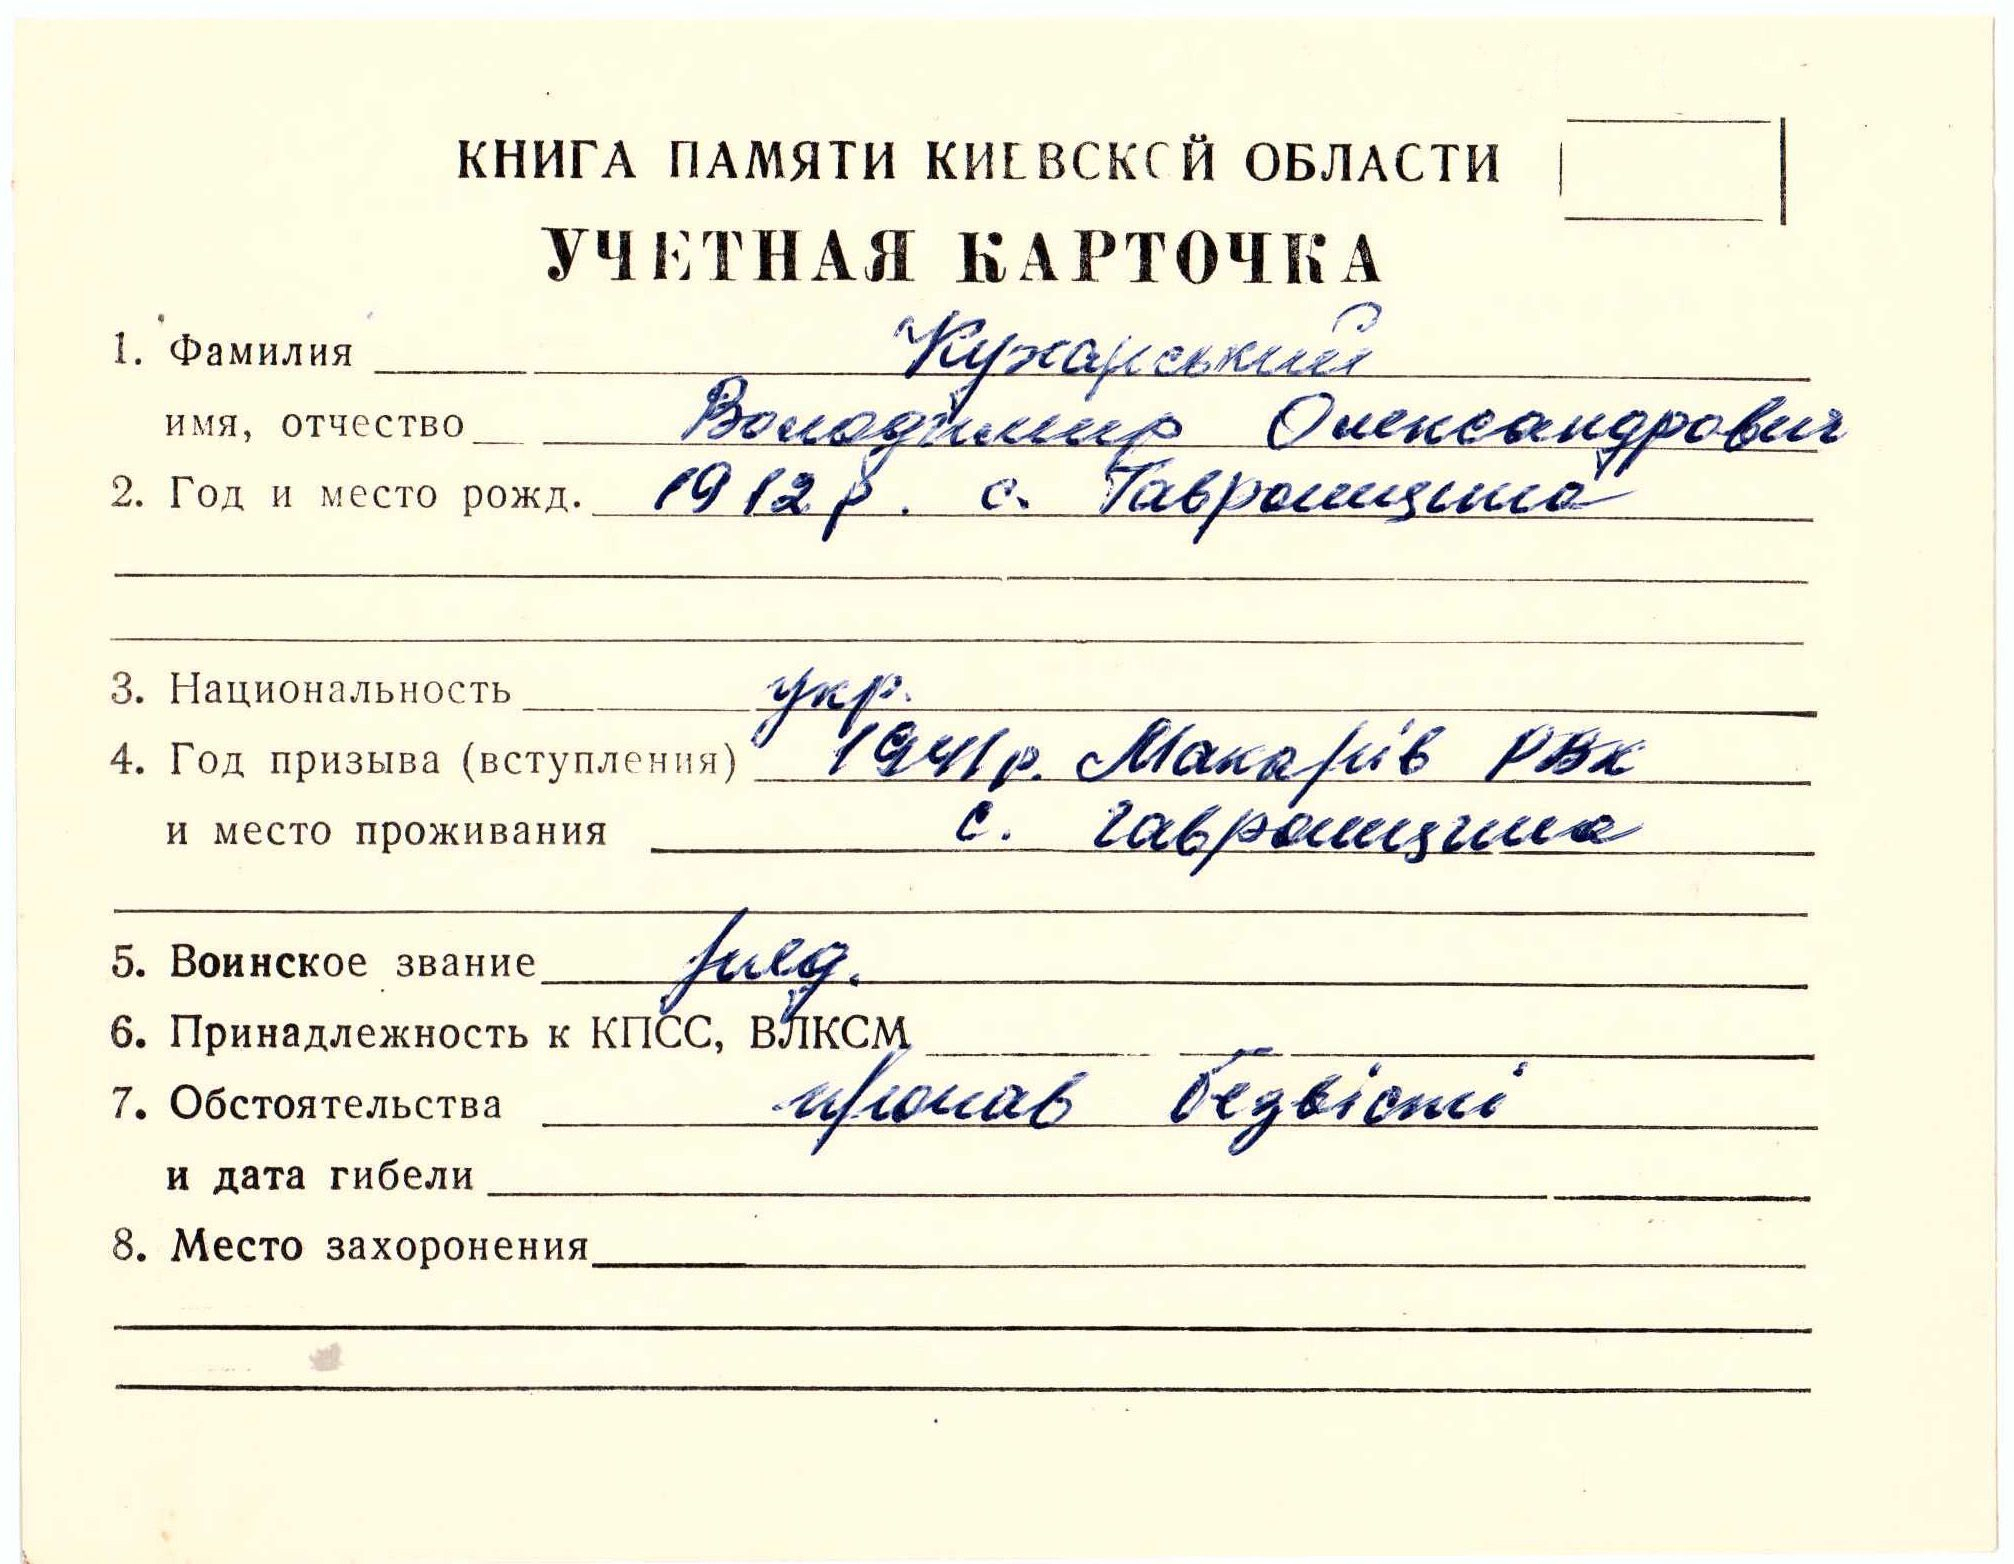 КНИГА ПАМЯТИ КИЕВСКОЙ ОБЛАСТИ
УЧЕТНАЯ КАРТОЧКА
1. Фамилия Кухарський
имя, отчество Володимир Олександрович
2. Год и место рожд. 1912 р. с. Гавронщина
3. Национальность укр.
4. Год призыва (вступления) 1941 р. Макарів РВК
и место проживания с. Гавронщина
5. Воинское звание ряд.
6. Принадлежность к КПСС, ВЛКСМ —
7. Обстоятельства пропав безвісті
и дата гибели
8. Место захоронения